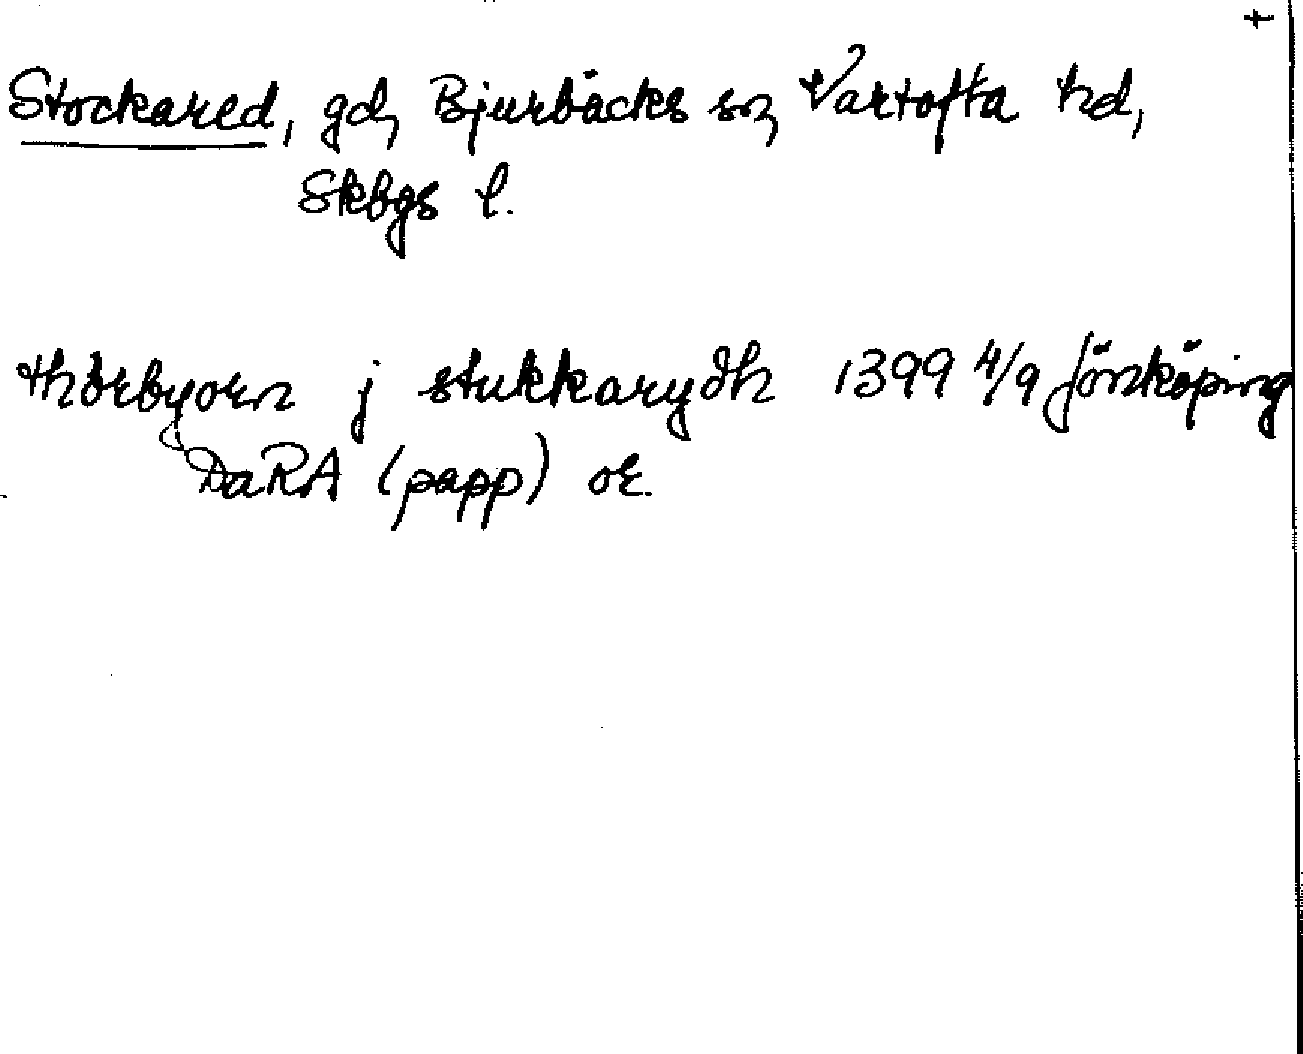 +
Stockared, gd, Bjurbäcks sn, Vartofta hd,
Skbgs l.
thorbyorn j stukkarydh 1399 4/9 Jönköping
DaRA (papp) or.